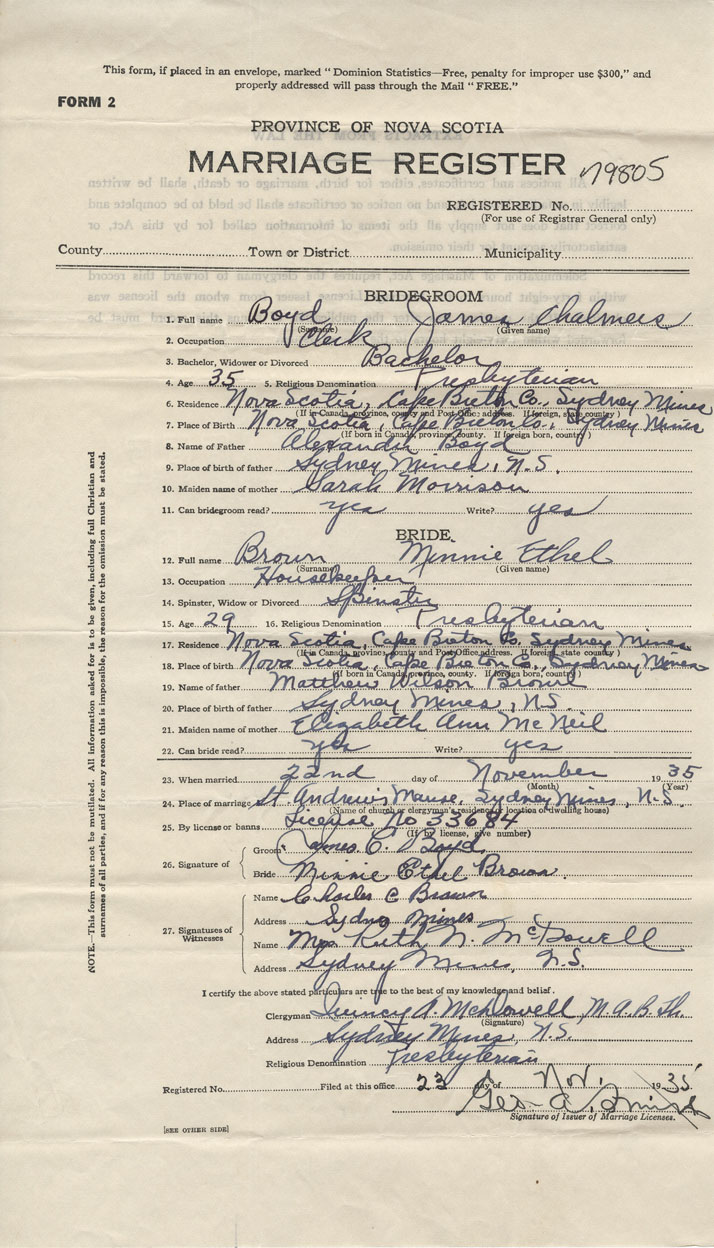 This form, if placed in an envelope, marked "Dominion Statistics—Free, penalty for improper use $300," and
properly addressed will pass through the Mail "FREE."
FORM 2
PROVINCE OF NOVA SCOTIA
MARRIAGE REGISTER 79805
REGISTERED No.
(For use of Registrar General only)
County Town or District Municipality
BRIDEGROOM
1. Full name Boyd James Chalmers
(Surname) (Given name)
2. Occupation Clerk
3. Bachelor, Widower or Divorced Bachelor
4. Age 35 5. Religious Denomination Presbyterian
6. Residence Nova Scotia, Cape Breton Co., Sydney Mines
(If in Canada, province, county and Post Office address. If foreign, state country)
7. Place of Birth Nova Scotia, Cape Breton Co., Sydney Mines
(If born in Canada, province, county. If foreign born, country)
8. Name of Father Alexander Boyd
9. Place of birth of father Sydney Mines, N.S.
10. Maiden name of mother Sarah Morrison
11. Can bridegroom read? yes Write? yes
BRIDE
12. Full name Brown Minnie Ethel
(Surname) (Given name)
13. Occupation Housekeeper
14. Spinster, Widow or Divorced Spinster
15. Age 29 16. Religious Denomination Presbyterian
17. Residence Nova Scotia, Cape Breton Co. Sydney Mines
(If in Canada, province, county and Post Office address. If foreign, state country)
18. Place of birth Nova Scotia, Cape Breton Co., Sydney Mines
(If born in Canada, province, county. If foreign born, country)
19. Name of father Matthew Wilson Brown
20. Place of birth of father Sydney Mines, N.S.
21. Maiden name of mother Elizabeth Ann McNeil
22. Can bride read? yes Write? yes
23. When married 22nd day of November 1935
(Month) (Year)
24. Place of marriage St. Andrew's Manse, Sydney Mines, N.S.
(Name of church or clergyman's residence or location of dwelling house)
25. By license or banns License No 33684
(If by license, give number)
26. Signature of
Groom James C. Boyd
Bride Minnie Ethel Brown.
27. Signatures of Witnesses
Name Charles C Brown
Address Sydney Mines
Name Mrs Ruth N. McDowell
Address Sydney Mines, N.S.
I certify the above stated particulars are true to the best of my knowledge and belief.
Clergyman Quincy A. McDowell, M.A. B.Th.
(Signature)
Address Sydney Mines, N.S.
Religious Denomination Presbyterian
Registered No. Filed at this office 23 day of Nov. 1935
Geo. A.
Signature of Issuer of Marriage Licenses.
[SEE OTHER SIDE]
NOTE.—This form must not be mutilated. All information asked for is to be given, including full Christian and
surnames of all parties, and if for any reason this is impossible, the reason for the omission must be stated.